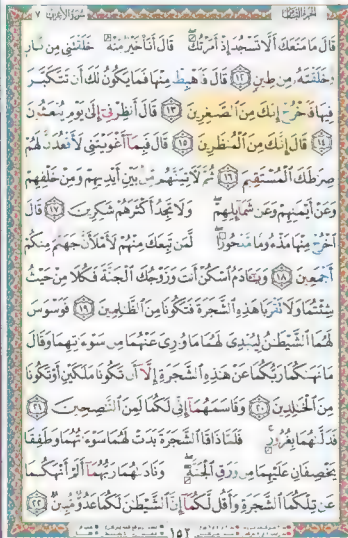 الجزء الثامن سورة الأعراف ٧
قَالَ مَا مَنَعَكَ أَلَّا تَسْجُدَ إِذْ أَمَرْتُكَ قَالَ أَنَا۠ خَيْرٌ مِّنْهُ خَلَقْتَنِى مِن نَّارٍ
وَخَلَقْتَهُۥ مِن طِينٍ ١٢ قَالَ فَٱهْبِطْ مِنْهَا فَمَا يَكُونُ لَكَ أَن تَتَكَبَّرَ
فِيهَا فَٱخْرُجْ إِنَّكَ مِنَ ٱلصَّٰغِرِينَ ١٣ قَالَ أَنظِرْنِىٓ إِلَىٰ يَوْمِ يُبْعَثُونَ
١٤ قَالَ إِنَّكَ مِنَ ٱلْمُنظَرِينَ ١٥ قَالَ فَبِمَآ أَغْوَيْتَنِى لَأَقْعُدَنَّ لَهُمْ
صِرَٰطَكَ ٱلْمُسْتَقِيمَ ١٦ ثُمَّ لَءَاتِيَنَّهُم مِّنۢ بَيْنِ أَيْدِيهِمْ وَمِنْ خَلْفِهِمْ
وَعَنْ أَيْمَٰنِهِمْ وَعَن شَمَآئِلِهِمْ وَلَا تَجِدُ أَكْثَرَهُمْ شَٰكِرِينَ ١٧ قَالَ
ٱخْرُجْ مِنْهَا مَذْءُومًا مَّدْحُورًا لَّمَن تَبِعَكَ مِنْهُمْ لَأَمْلَأَنَّ جَهَنَّمَ مِنكُمْ
أَجْمَعِينَ ١٨ وَيَٰٓـَٔادَمُ ٱسْكُنْ أَنتَ وَزَوْجُكَ ٱلْجَنَّةَ فَكُلَا مِنْ حَيْثُ
شِئْتُمَا وَلَا تَقْرَبَا هَٰذِهِ ٱلشَّجَرَةَ فَتَكُونَا مِنَ ٱلظَّٰلِمِينَ ١٩ فَوَسْوَسَ
لَهُمَا ٱلشَّيْطَٰنُ لِيُبْدِىَ لَهُمَا مَا وُۥرِىَ عَنْهُمَا مِن سَوْءَٰتِهِمَا وَقَالَ
مَا نَهَىٰكُمَا رَبُّكُمَا عَنْ هَٰذِهِ ٱلشَّجَرَةِ إِلَّآ أَن تَكُونَا مَلَكَيْنِ أَوْ تَكُونَا
مِنَ ٱلْخَٰلِدِينَ ٢٠ وَقَاسَمَهُمَآ إِنِّى لَكُمَا لَمِنَ ٱلنَّٰصِحِينَ ٢١
فَدَلَّىٰهُمَا بِغُرُورٍ فَلَمَّا ذَاقَا ٱلشَّجَرَةَ بَدَتْ لَهُمَا سَوْءَٰتُهُمَا وَطَفِقَا
يَخْصِفَانِ عَلَيْهِمَا مِن وَرَقِ ٱلْجَنَّةِ وَنَادَىٰهُمَا رَبُّهُمَآ أَلَمْ أَنْهَكُمَا
عَن تِلْكُمَا ٱلشَّجَرَةِ وَأَقُل لَّكُمَآ إِنَّ ٱلشَّيْطَٰنَ لَكُمَا عَدُوٌّ مُّبِينٌ ٢٢
١٥٢